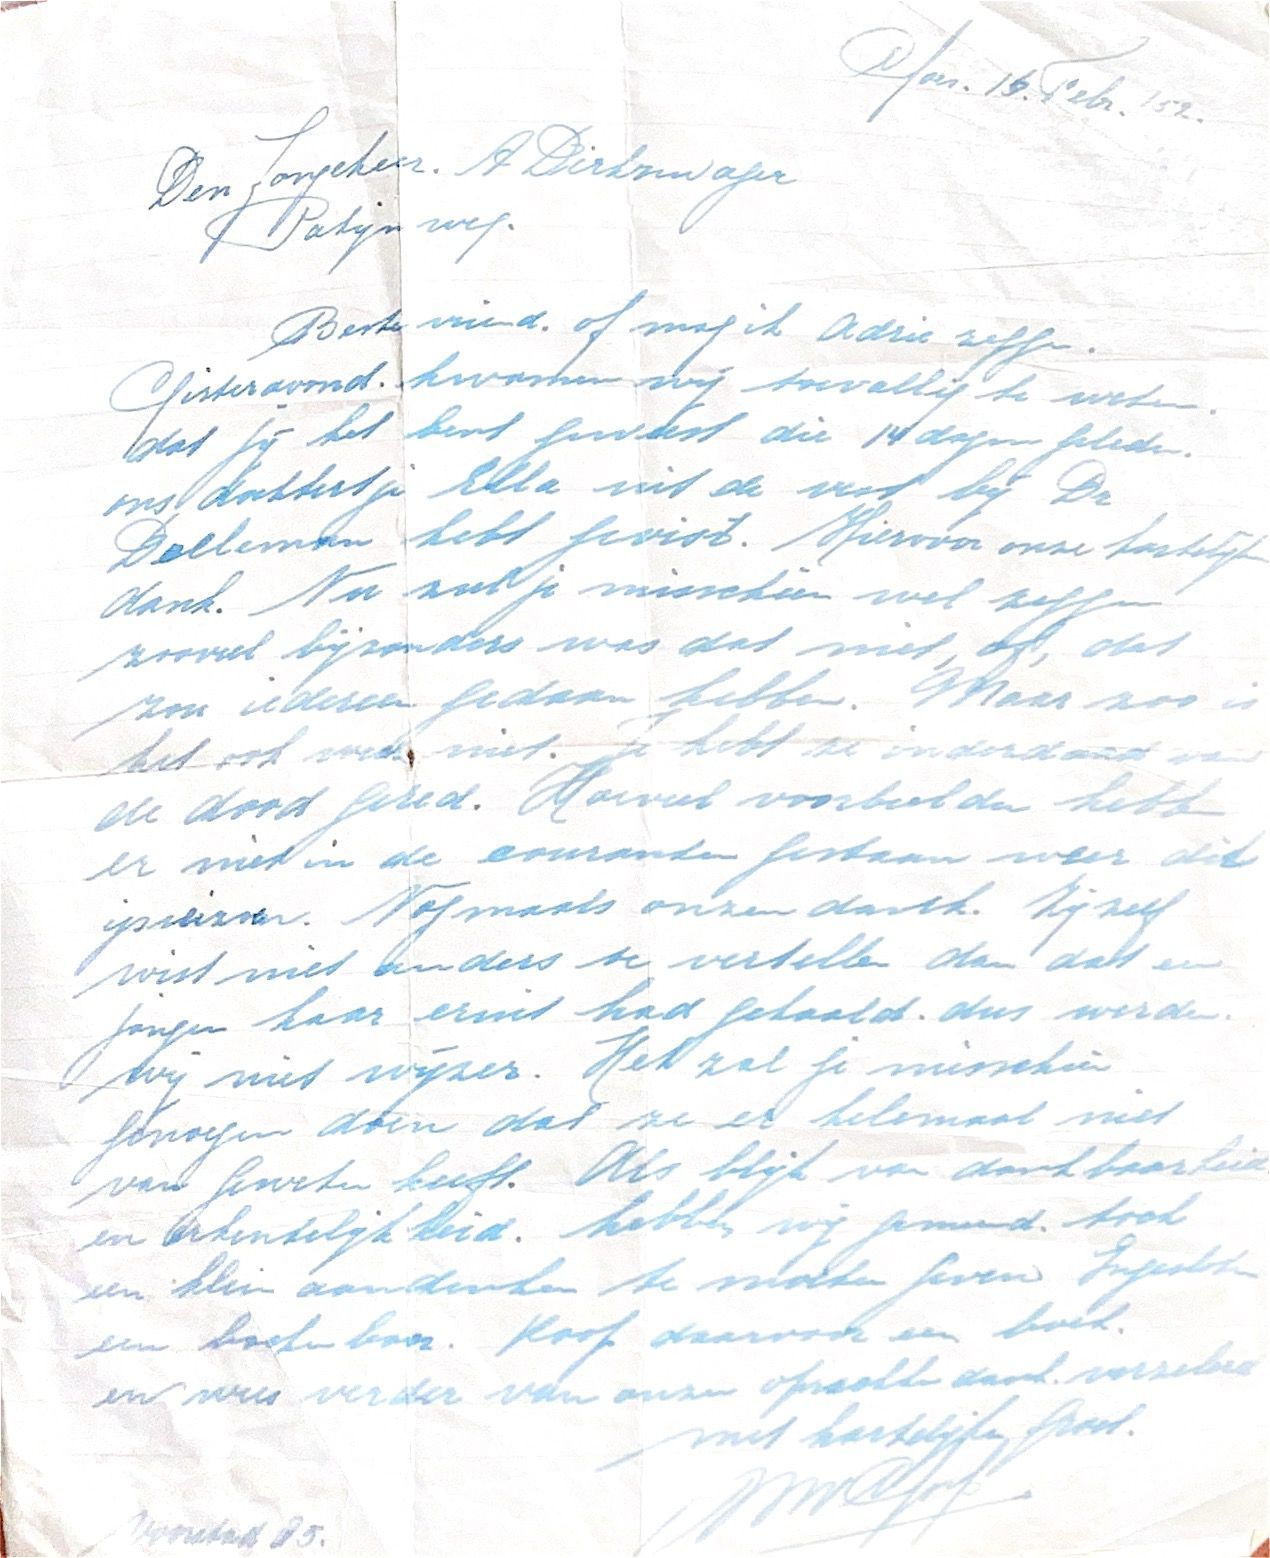 Goes. 15 Febr. '52.
Den Jongeheer. A Dirkzwager
Patijn weg.
Beste vriend. of mag ik Adrie zeggen.
Gisteravond. kwamen wij toevallig te weten.
dat jij het bent geweest die 14 dagen geleden.
ons dochtertje Ella uit de vest bij Dr
Delleman hebt gevist. Hiervoor onze hartelijke
dank. Nu zul je misschien wel zeggen
zooveel bijzonders was dat niet, of, dat
zou iedereen gedaan hebben. Maar zoo is
het ook weer niet. Je hebt ze inderdaad van
de dood gered. Hoeveel voorbeelden hebben
er niet in de couranten gestaan weer dit
Nogmaals onzen dank. Zij zelf
wist niet anders te vertellen dan dat een
jongen haar eruit had gehaald. dus werden.
wij niet wijzer. Het zal je misschien
genoegen doen dat ze er helemaal niet
van geweten heeft. Als blijk van dankbaarheid
en erkentelijkheid. hebben wij gemeend. toch
een klein aandenken te moeten geven Ingesloten
een boekenbon. Koop daarvoor een boek.
en wees verder van onzen oprechten dank. verzekerd
met hartelijke Groet.
Voorstad 85.